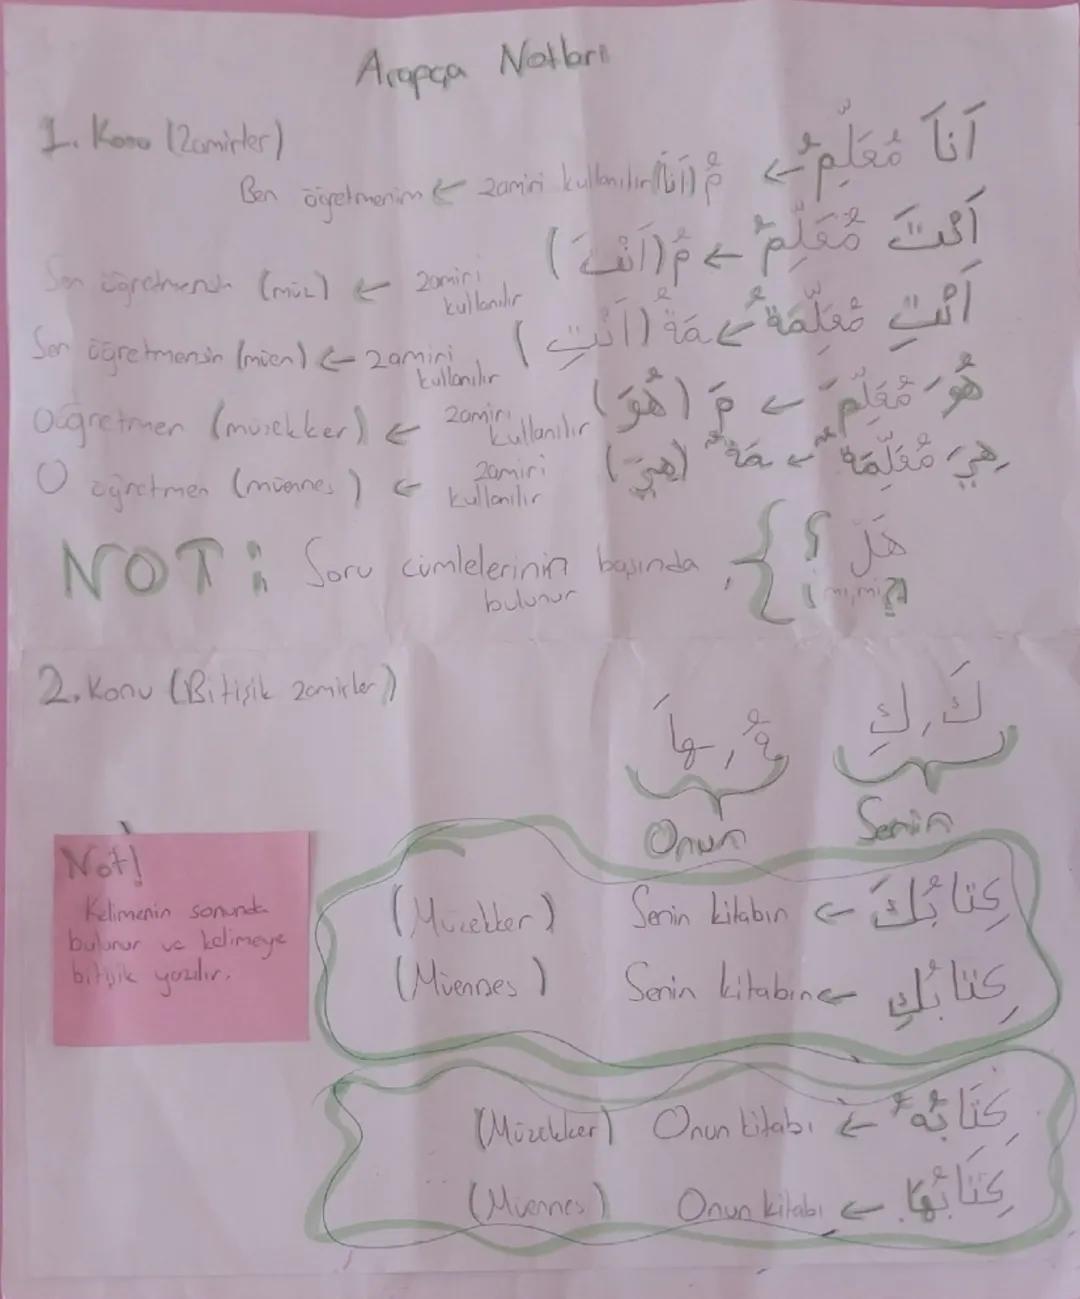 Arapça Notları
1. Konu (Zamirler)
اَناَ مُعَلِّمٌ ← مٌ (اَناَ) zamiri kullanılır ← Ben öğretmenim
اَنْتَ مُعَلِّمٌ ← مٌ (اَنْتَ) zamiri kullanılır ← Sen öğretmensin (müz)
اَنْتِ مُعَلِّمَةٌ ← مَةٌ (اَنْتِ) zamiri kullanılır ← Sen öğretmensin (müen)
هُوَ مُعَلِّمَ ← مَ (هُوَ) zamiri kullanılır ← O öğretmen (müzekker)
هِيَ مُعَلِّمَةٌ ← مَةٌ (هِيَ) zamiri kullanılır ← O öğretmen (müennes)
NOT: Soru cümlelerinin başında bulunur, { هَلْ ؟
mı, mi?
2. Konu (Bitişik zamirler)
كَ, كِ
هُ, هاَ
Senin
Onun
Not!
Kelimenin sonunda
bulunur ve kelimeye
bitişik yazılır.
كِتاَبُكَ ← Senin kitabın (Müzekker)
كِتاَبُكِ ← Senin kitabın (Müennes)
كِتَابُهُ ← Onun kitabı (Müzekker)
كِتَابُهَا ← Onun kitabı (Müennes)